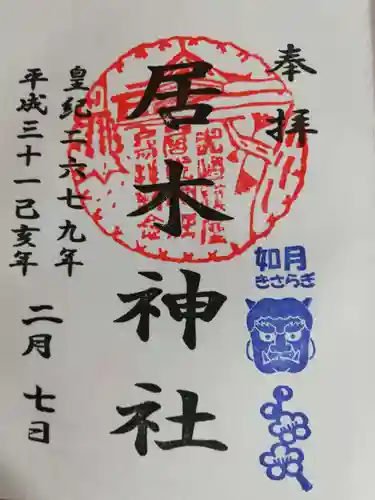 奉拝
居木神社
皇紀二六七九年
平成三十一己亥年
二月七日
如月
きさらぎ